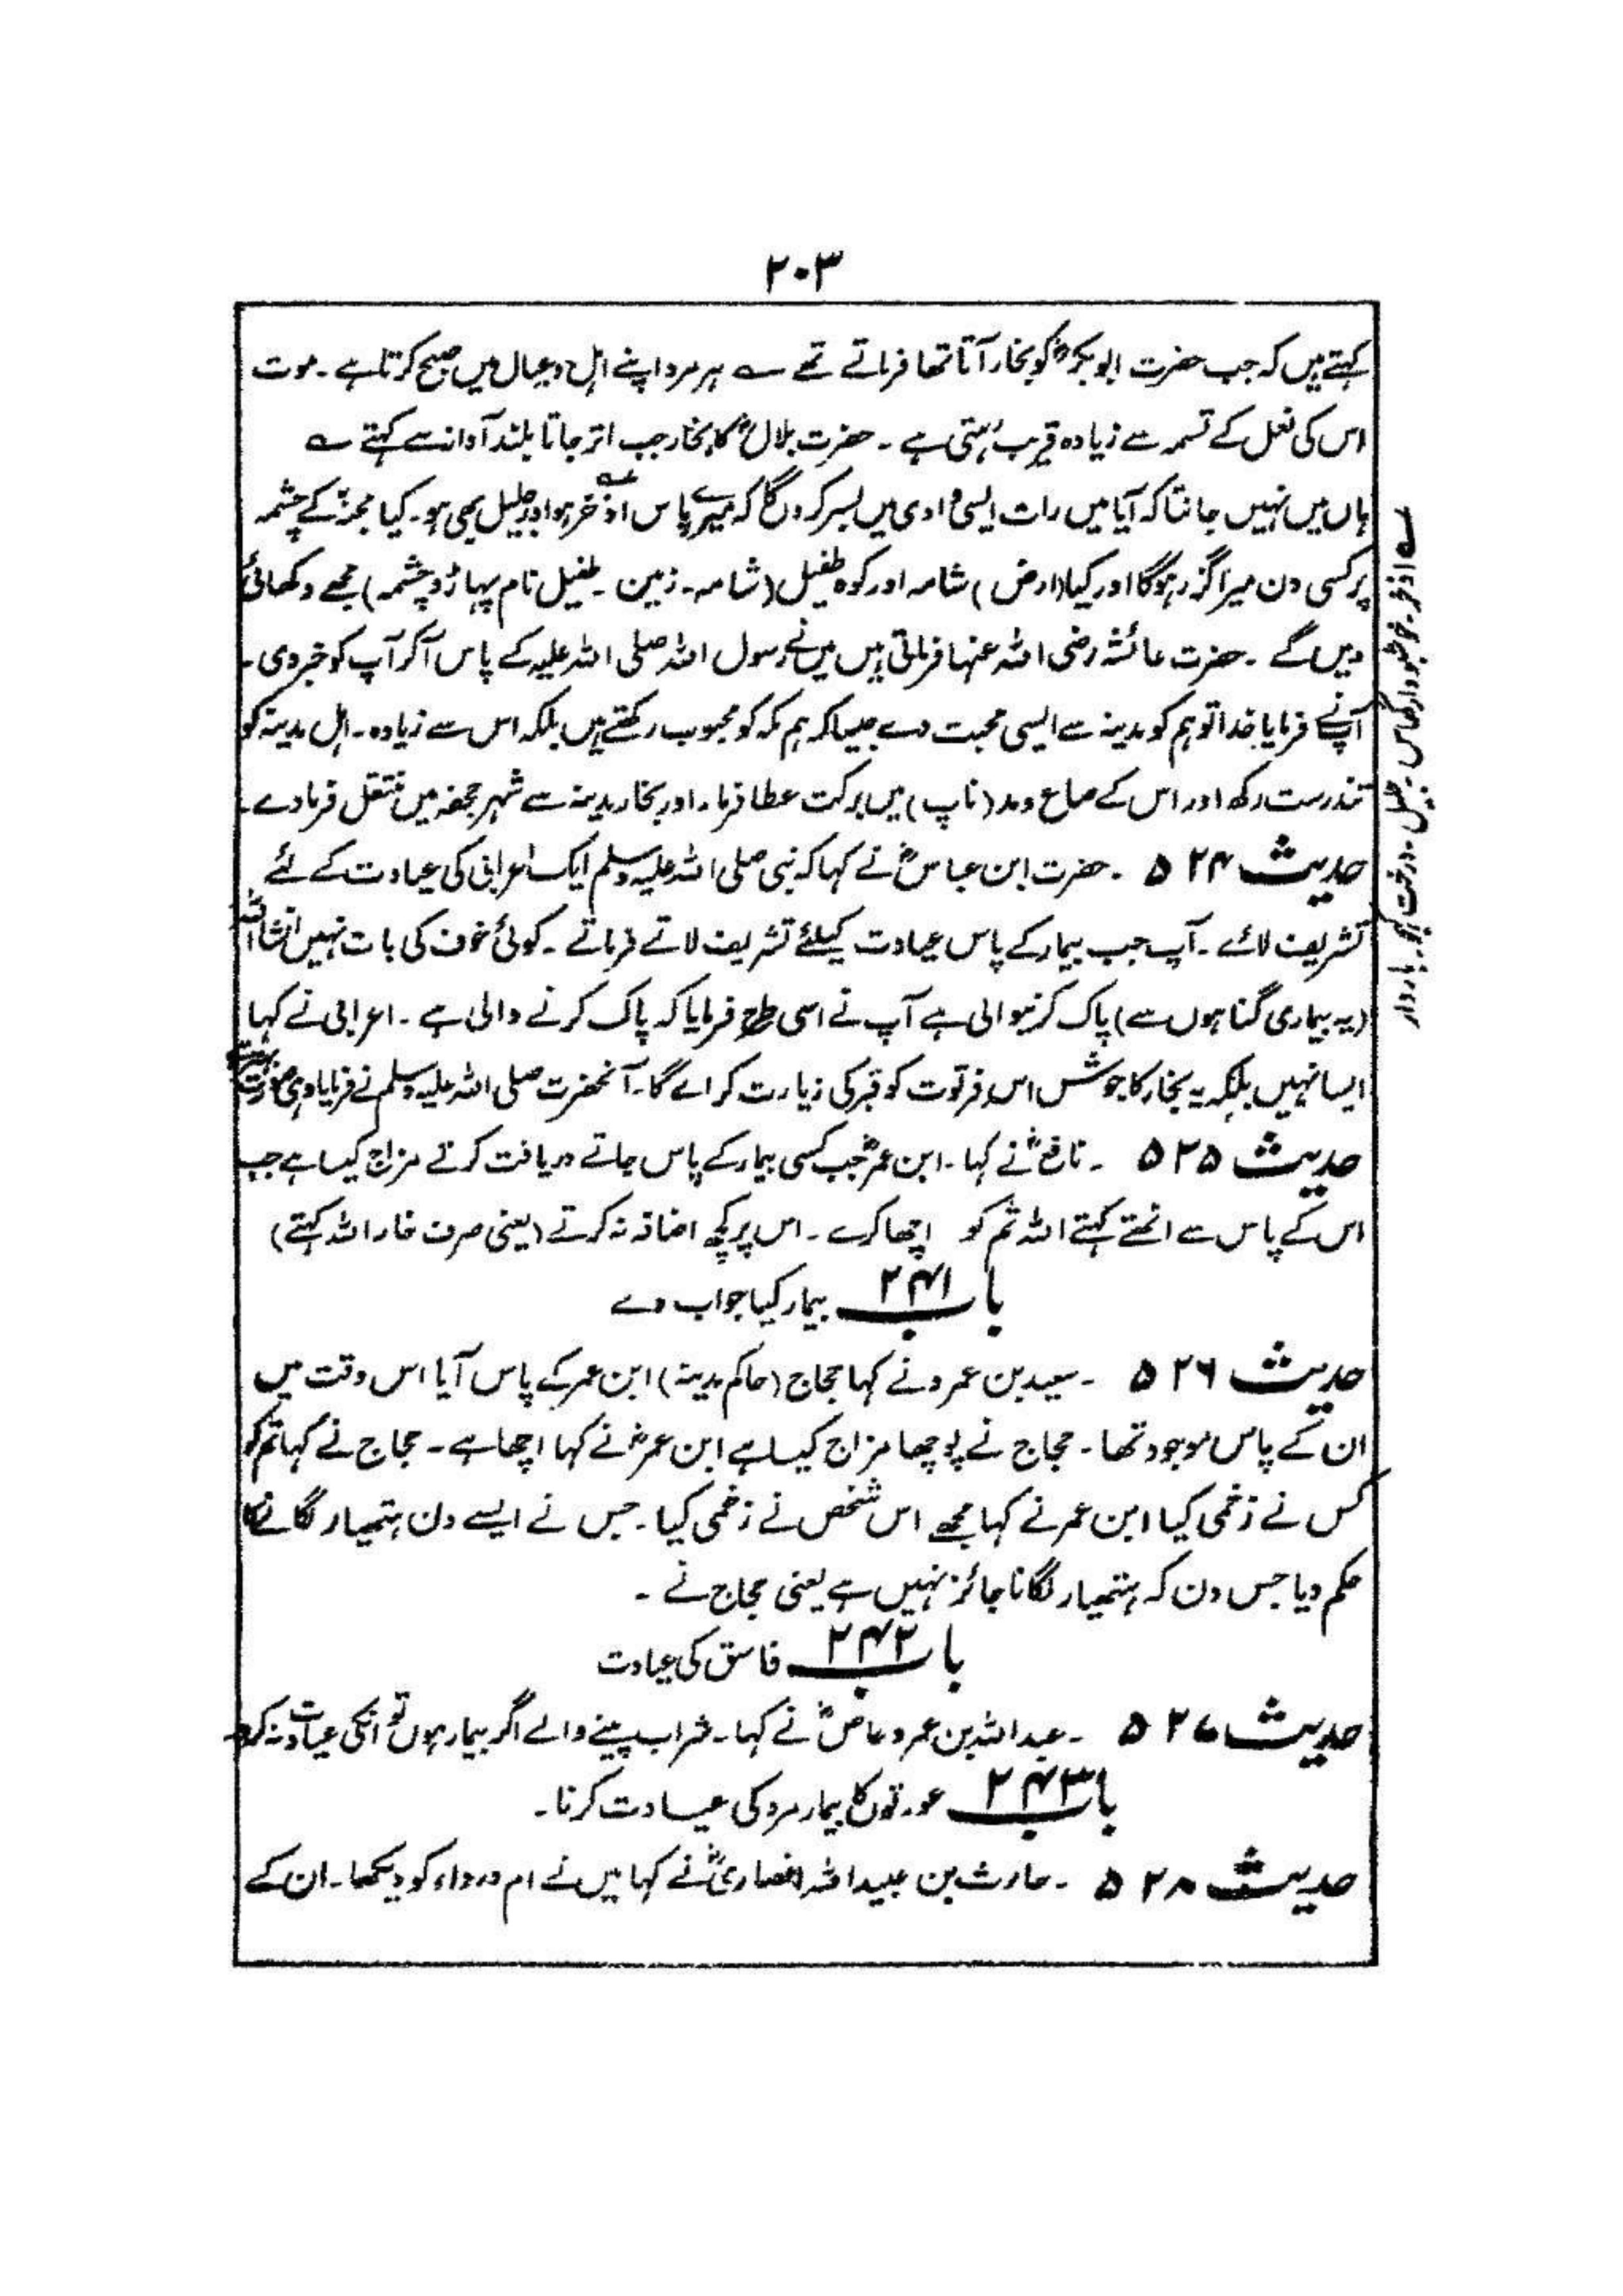 ۲۰۳
کہتے ہیں کہ جب حضرت ابوبکرؓ کو بخار آتا تھا فرماتے تھے ؎ ہر مرد اپنے اہل و عیال میں صبح کرتا ہے ۔ موت
اس کی نعل کے تسمہ سے زیادہ قریب رہتی ہے ۔ حضرت بلالؓ کا بخار جب اتر جاتا بلند آواز سے کہتے ؎
ہاں میں نہیں جانتا کہ آیا میں رات ایسی وادی میں بسر کروں گا کہ میرے پاس اذخر ہو اور جلیل بھی ہو۔ کیا مجنّہ کے چشمہ
پر کسی دن میرا گزر ہوگا اور کیا (ارض) شامہ اور کوہ طفیل (شامہ۔ زمین ۔ طفیل نام پہاڑ و چشمہ) مجھے دکھائی
دیں گے ۔ حضرت عائشہ رضی اللہ عنہا فرماتی ہیں میں نے رسول اللہ صلی اللہ علیہ کے پاس آکر آپ کو خبر دی ۔
آپنے فرمایا خدا تو ہم کو مدینہ سے ایسی محبت دے جیسا کہ ہم مکہ کو محبوب رکھتے ہیں بلکہ اس سے زیادہ ۔ اہل مدینہ کو
تندرست رکھ اور اس کے صاع و مد (ناپ) میں برکت عطا فرما ۔ اور بخار مدینہ سے شہر جحفہ میں منتقل فرما دے ۔
حدیث ۵۲۴ ۔ حضرت ابن عباسؓ نے کہا کہ نبی صلی اللہ علیہ وسلم ایک اعرابی کی عیادت کے لئے
تشریف لائے ۔ آپ جب بیمار کے پاس عیادت کیلئے تشریف لاتے فرماتے ۔ کوئی خوف کی بات نہیں انشا اللہ
(یہ بیماری گناہوں سے) پاک کرنیوالی ہے آپ نے اسی طرح فرمایا کہ پاک کرنے والی ہے ۔ اعرابی نے کہا
ایسا نہیں بلکہ یہ بخار کا جوش اس فرتوت کو قبر کی زیارت کرائے گا ۔ آنحضرت صلی اللہ علیہ وسلم نے فرمایا وہی
حدیث ۵۲۵ ۔ نافعؓ نے کہا ۔ ابن عمرؓ جب کسی بیمار کے پاس جاتے دریافت کرتے مزاج کیسا ہے جب
اس کے پاس سے اٹھتے کہتے اللہ تم کو اچھا کرے ۔ اس پر کچھ اضافہ نہ کرتے (یعنی صرف خار اللہ کہتے)
باب ۲۴۱ بیمار کیا جواب دے
حدیث ۵۲۶ ۔ سعید بن عمرو نے کہا حجاج (حاکم مدینہ) ابن عمر کے پاس آیا اس وقت میں
ان کے پاس موجود تھا ۔ حجاج نے پوچھا مزاج کیسا ہے ابن عمرؓ نے کہا اچھا ہے ۔ حجاج نے کہا تم کو
کس نے زخمی کیا ابن عمر نے کہا مجھے اس شخص نے زخمی کیا ۔ جس نے ایسے دن ہتھیار لگانے کا
حکم دیا جس دن کہ ہتھیار لگانا جائز نہیں ہے یعنی حجاج نے ۔
باب ۲۴۲ فاسق کی عیادت
حدیث ۵۲۷ ۔ عبداللہ بن عمرو عاصؓ نے کہا ۔ شراب پینے والے اگر بیمار ہوں تو انکی عیادت نہ کرو
باب ۲۴۳ عورتوں کا بیمار مرد کی عیادت کرنا ۔
حدیث ۵۲۸ ۔ حارث بن عبیداللہ انصاریؓ نے کہا میں نے ام درداء کو دیکھا ۔ ان کے
؎ اذخر ۔ خوشبودار گھاس ۔ جلیل ۔ درخت